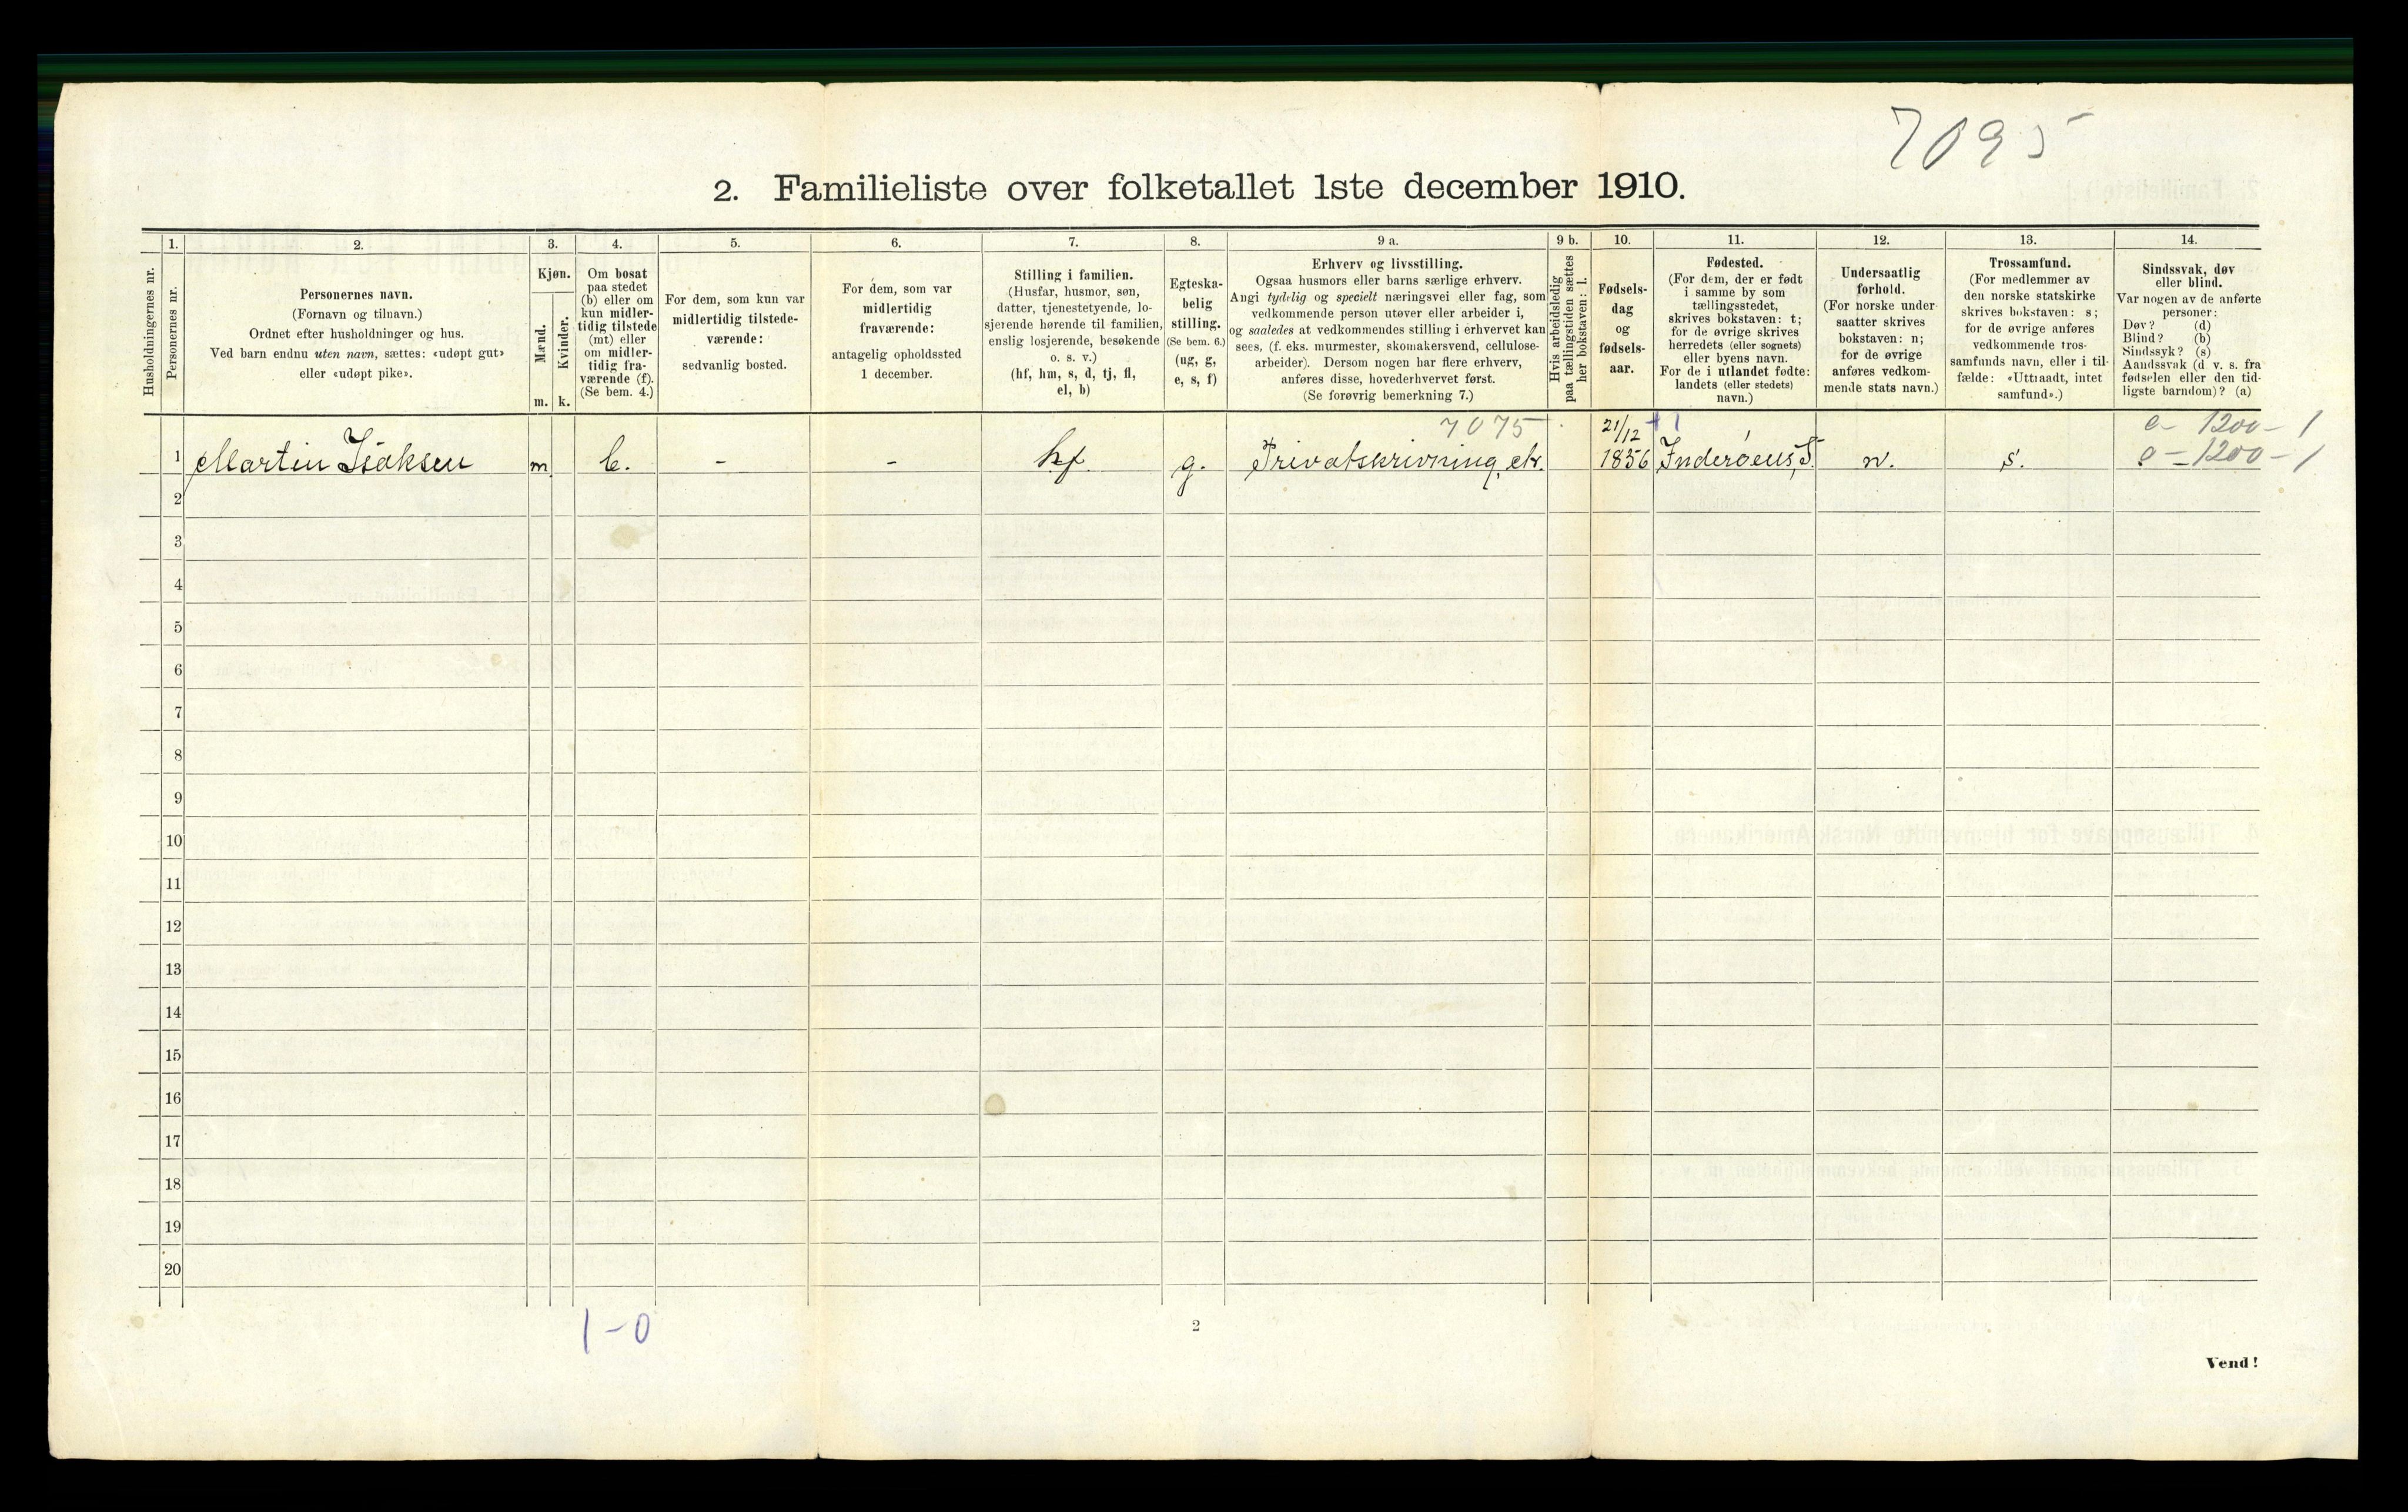 7095
2. Familieliste over folketallet 1ste december 1910.
Husholdningernes nr.
1.
Personernes nr.
2.
Personernes navn.
(Fornavn og tilnavn.)
Ordnet efter husholdninger og hus.
Ved barn endnu uten navn, sættes: «udøpt gut»
eller «udøpt pike».
3.
Kjøn.
Mænd.
Kvinder.
m.
k.
4.
Om bosat
paa stedet
(b) eller om
kun midler-
tidig tilstede
(mt) eller
om midler-
tidig fra-
værende (f).
(Se bem. 4.)
5.
For dem, som kun var
midlertidig tilstede-
værende:
sedvanlig bosted.
6.
For dem, som var
midlertidig
fraværende:
antagelig opholdssted
1 december.
7.
Stilling i familien.
(Husfar, husmor, søn,
datter, tjenestetyende, lo-
sjerende hørende til familien,
enslig losjerende, besøkende
o. s. v.)
(hf, hm, s, d, tj, fl,
el, b)
8.
Egteska-
belig
stilling.
(Se bem. 6.)
(ug, g,
e, s, f)
9 a.
Erhverv og livsstilling.
Ogsaa husmors eller barns særlige erhverv.
Angi tydelig og specielt næringsvei eller fag, som
vedkommende person utøver eller arbeider i,
og saaledes at vedkommendes stilling i erhvervet kan
sees, (f. eks. murmester, skomakersvend, cellulose-
arbeider). Dersom nogen har flere erhverv,
anføres disse, hovederhvervet først.
(Se forøvrig bemerkning 7.)
9 b.
Hvis arbeidsledig
paa tællingstiden sættes
her bokstaven: l.
10.
Fødsels-
dag
og
fødsels-
aar.
11.
Fødested.
(For dem, der er født
i samme by som
tællingsstedet,
skrives bokstaven: t;
for de øvrige skrives
herredets (eller sognets)
eller byens navn.
For de i utlandet fødte:
landets (eller stedets)
navn.)
12.
Undersaatlig
forhold.
(For norske under-
saatter skrives
bokstaven: n;
for de øvrige
anføres vedkom-
mende stats navn.)
13.
Trossamfund.
(For medlemmer av
den norske statskirke
skrives bokstaven: s;
for de øvrige anføres
vedkommende tros-
samfunds navn, eller i til-
fælde: «Uttraadt, intet
samfund».)
14.
Sindssvak, døv
eller blind.
Var nogen av de anførte
personer:
Døv? (d)
Blind? (b)
Sindssyk? (s)
Aandssvak (d. v. s. fra
fødselen eller den tid-
ligste barndom)? (a)
7075 21/12 e- 1200-1
1 Martin Isaksen m b. - - hf g. Privatskrivning, etc. 1856 Inderøens, S. n. s. e-1200-1
2
3
4
5
6
7
8
9
10
11
12
13
14
15
16
17
18
19
20
1-0
2
Vend!